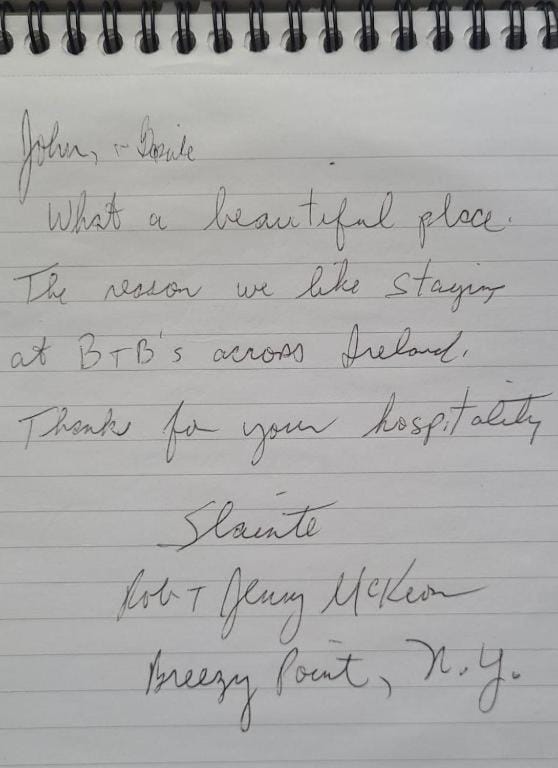 John, +
What a beautiful place.
The reason we like staying
at B+B's across Ireland.
Thanks for your hospitality
Slainte
Rob + Jenny McKeon
Breezy Point, N.Y.